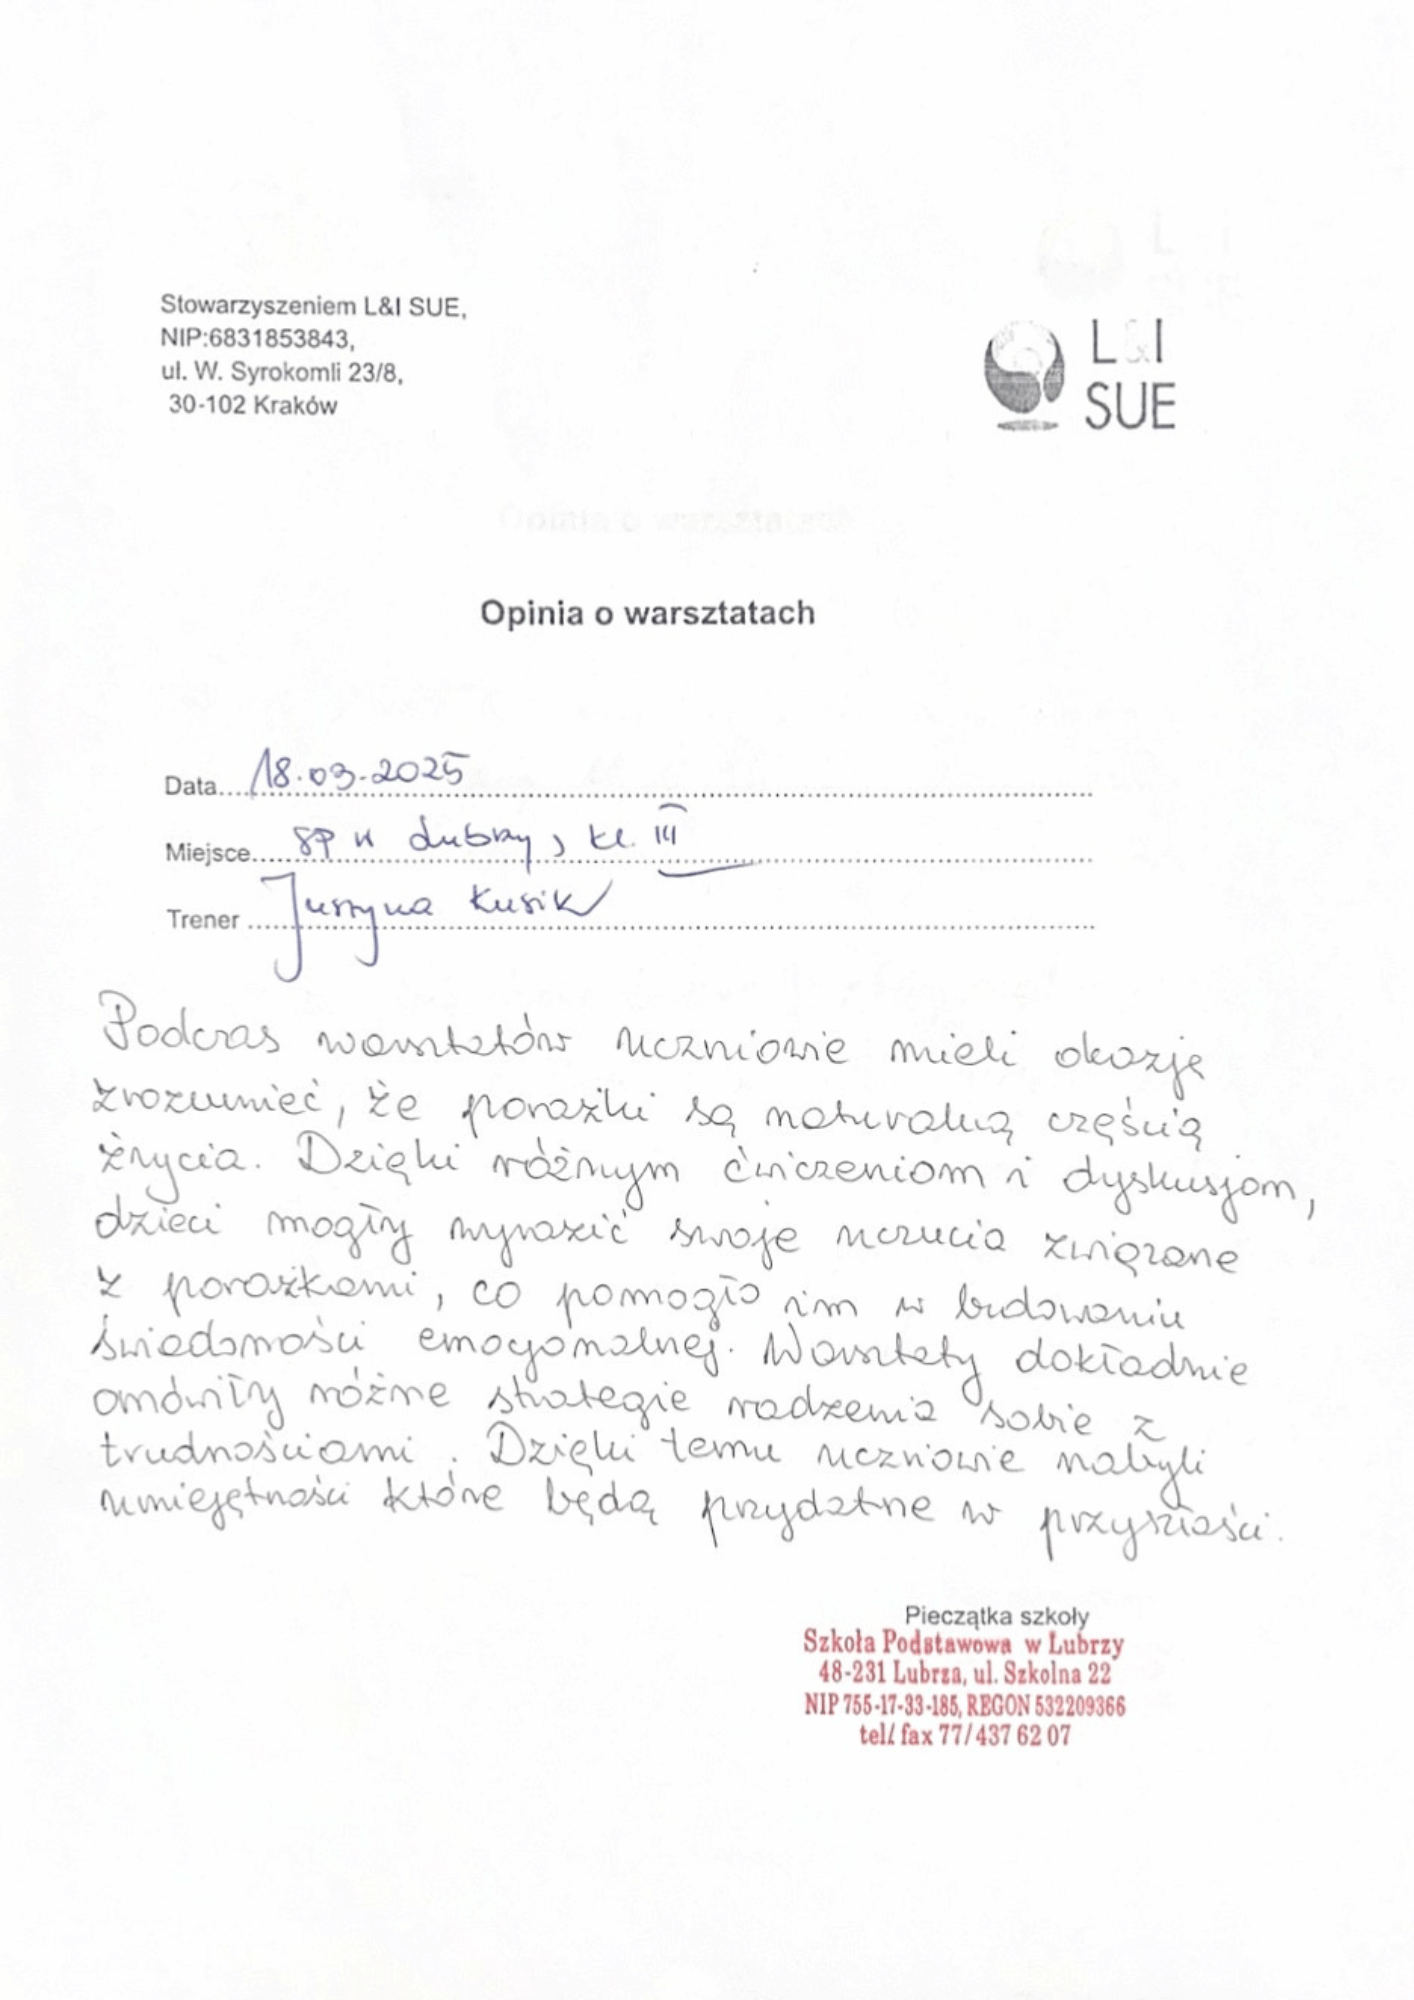 Stowarzyszeniem L&I SUE,
NIP:6831853843,
ul. W. Syrokomli 23/8,
30-102 Kraków
L&I
SUE
Opinia o warsztatach
Data 18.03.2025
Miejsce SP w Lubrzy, kl. III
Trener Justyna Kusik
Podczas warsztatów uczniowie mieli okazję
zrozumieć, że porażki są naturalną częścią
życia. Dzięki różnym ćwiczeniom i dyskusjom,
dzieci mogły wyrazić swoje uczucia związane
z porażkami, co pomogło im w budowaniu
świadomości emocjonalnej. Warsztaty dokładnie
omówiły różne strategie radzenia sobie z
trudnościami. Dzięki temu uczniowie nabyli
umiejętności które będą przydatne w przyszłości.
Pieczątka szkoły
Szkoła Podstawowa w Lubrzy
48-231 Lubrza, ul. Szkolna 22
NIP 755-17-33-185, REGON 532209366
tel/ fax 77/437 62 07